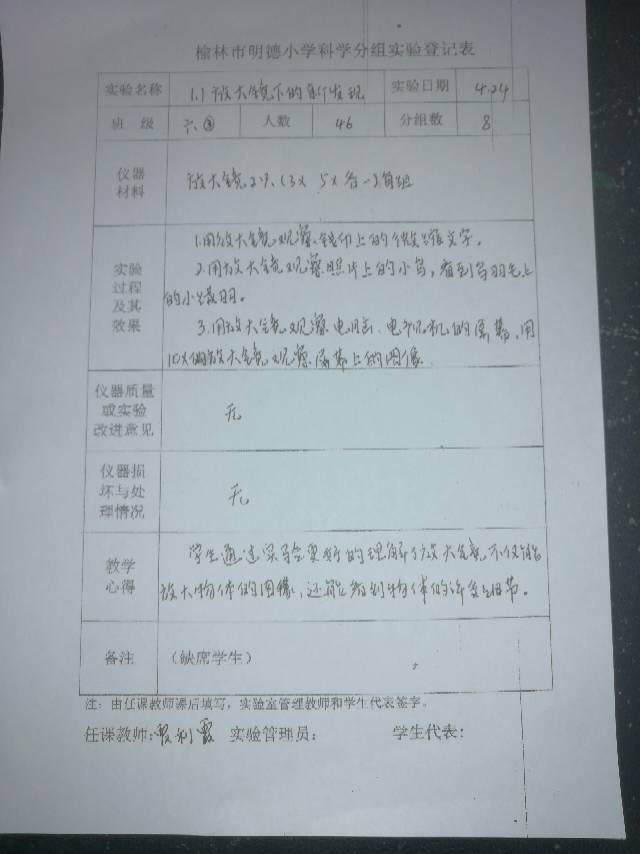 榆林市明德小学科学分组实验登记表
实验名称 1.1放大镜下的新发现 实验日期 4.24
班 级 六.③ 人数 46 分组数 8
仪器
材料
放大镜 (3x 5x各一)每组
1.用放大镜观察钱币上的微缩文字。
实验
过程
及其
效果
2.用放大镜观察照片上的小鸟,看到鸟羽毛上
的小
3.用放大镜观察电视、电视机的屏幕,用
10x的放大镜观察屏幕上的图像
仪器质量
或实验
改进意见
无
仪器损
坏与处
理情况
无
教学
心得
学生通过实验更好的理解了放大镜不仅能
放大物体的图像,还能看到物体的许多细节。
备注 (缺席学生)
注:由任课教师课后填写,实验室管理教师和学生代表签字。
任课教师: 实验管理员: 学生代表: